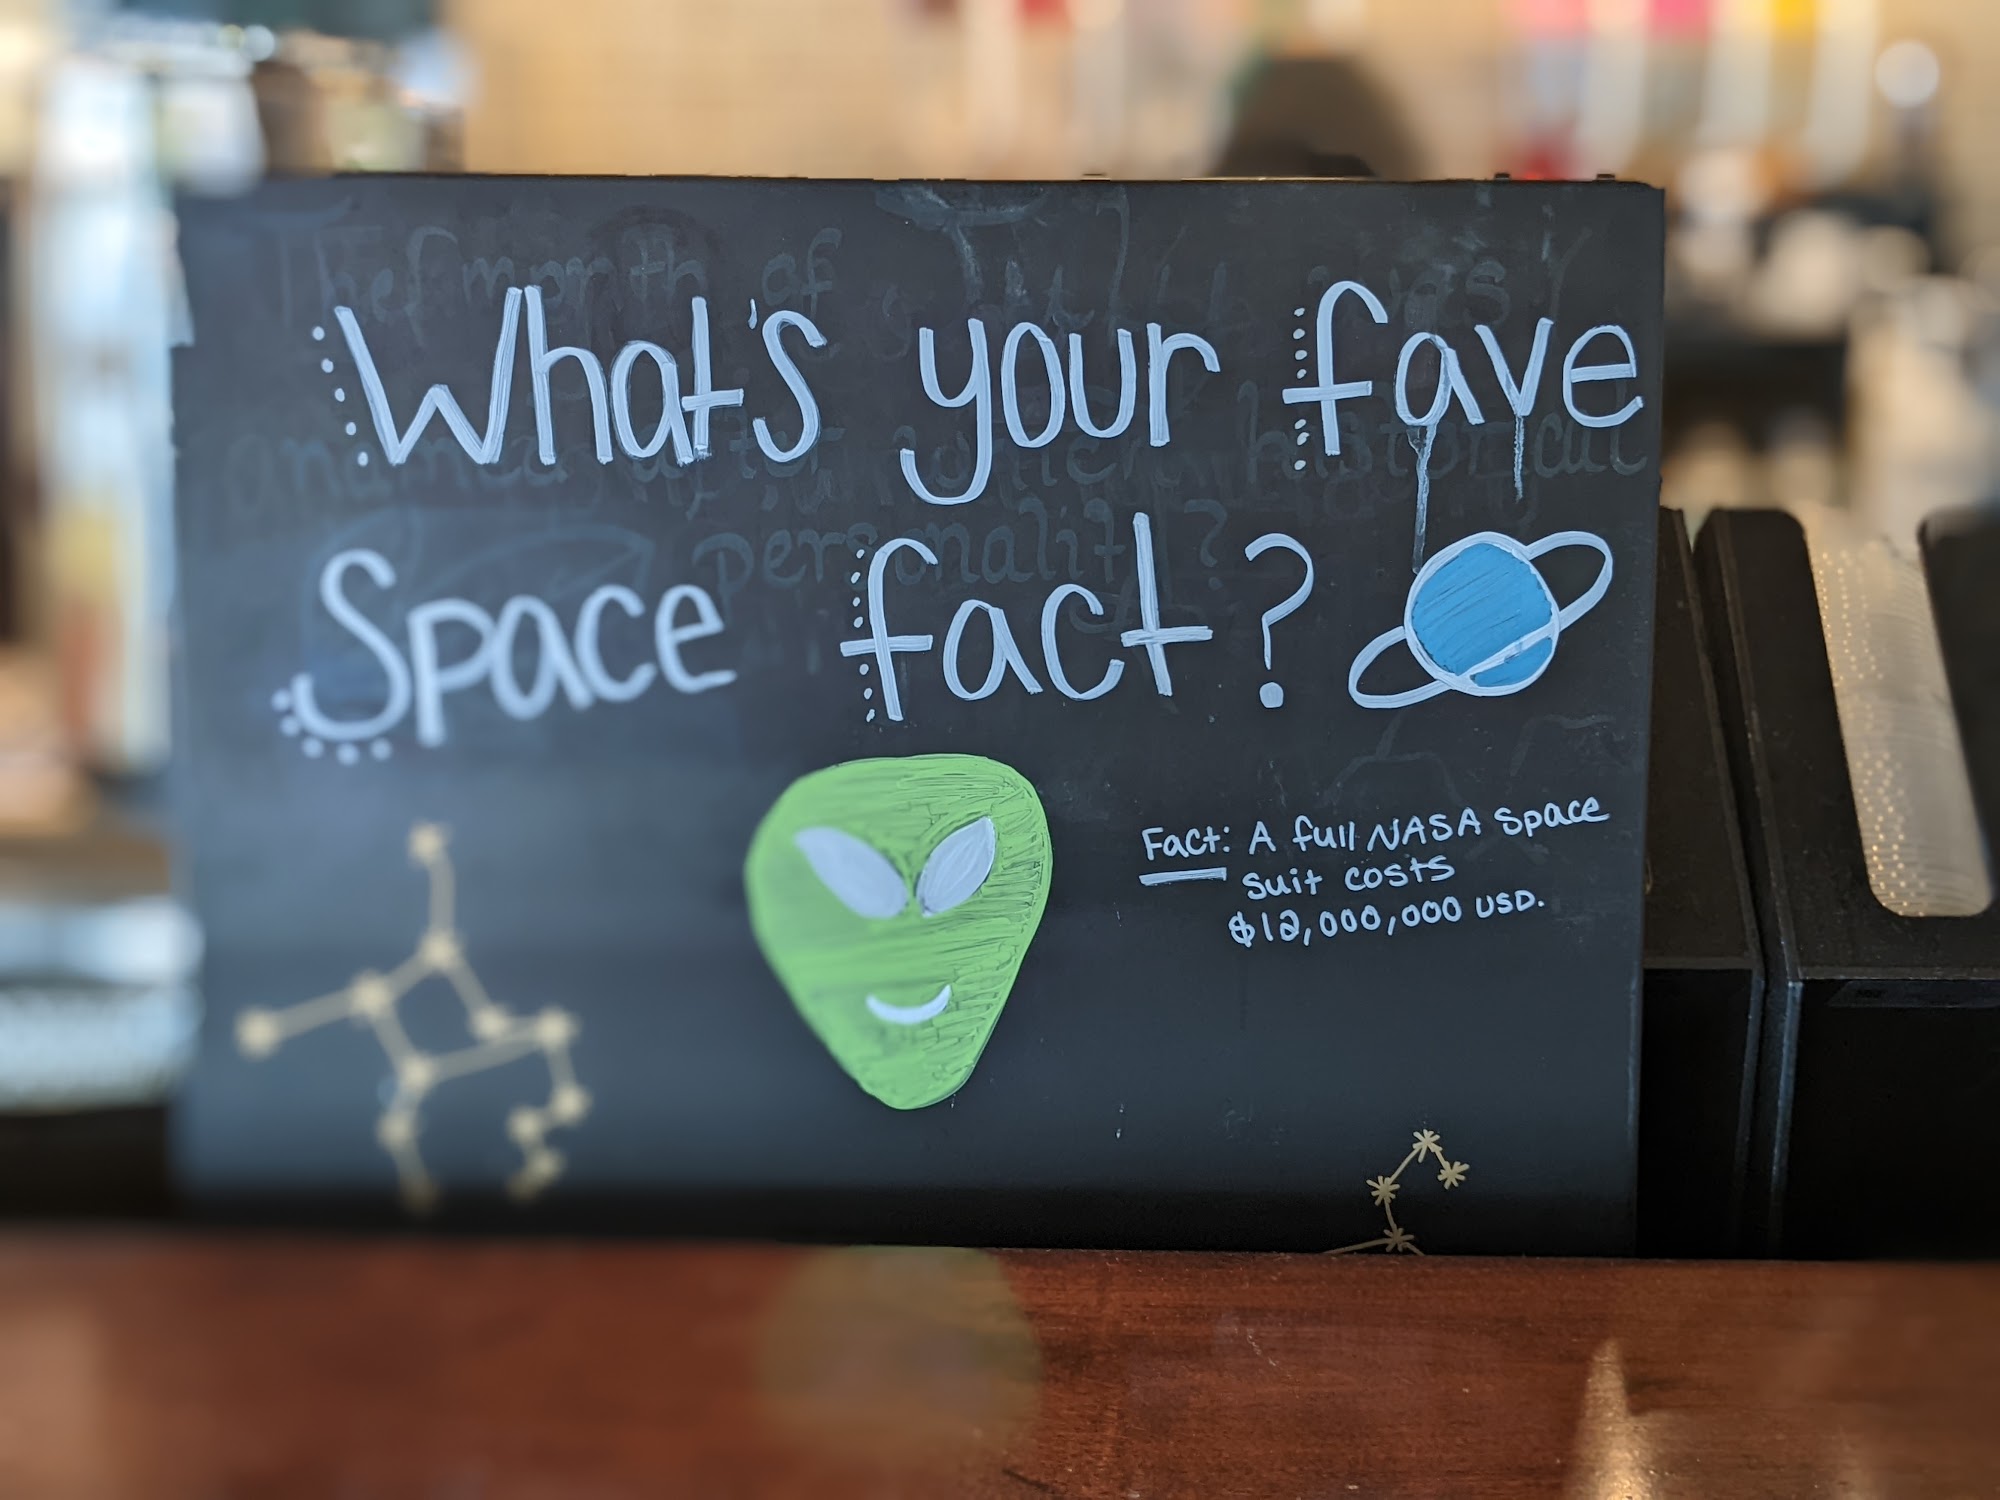 What's your fave
Space fact?
Fact: A full NASA Space
suit costs
$12,000,000 USD.